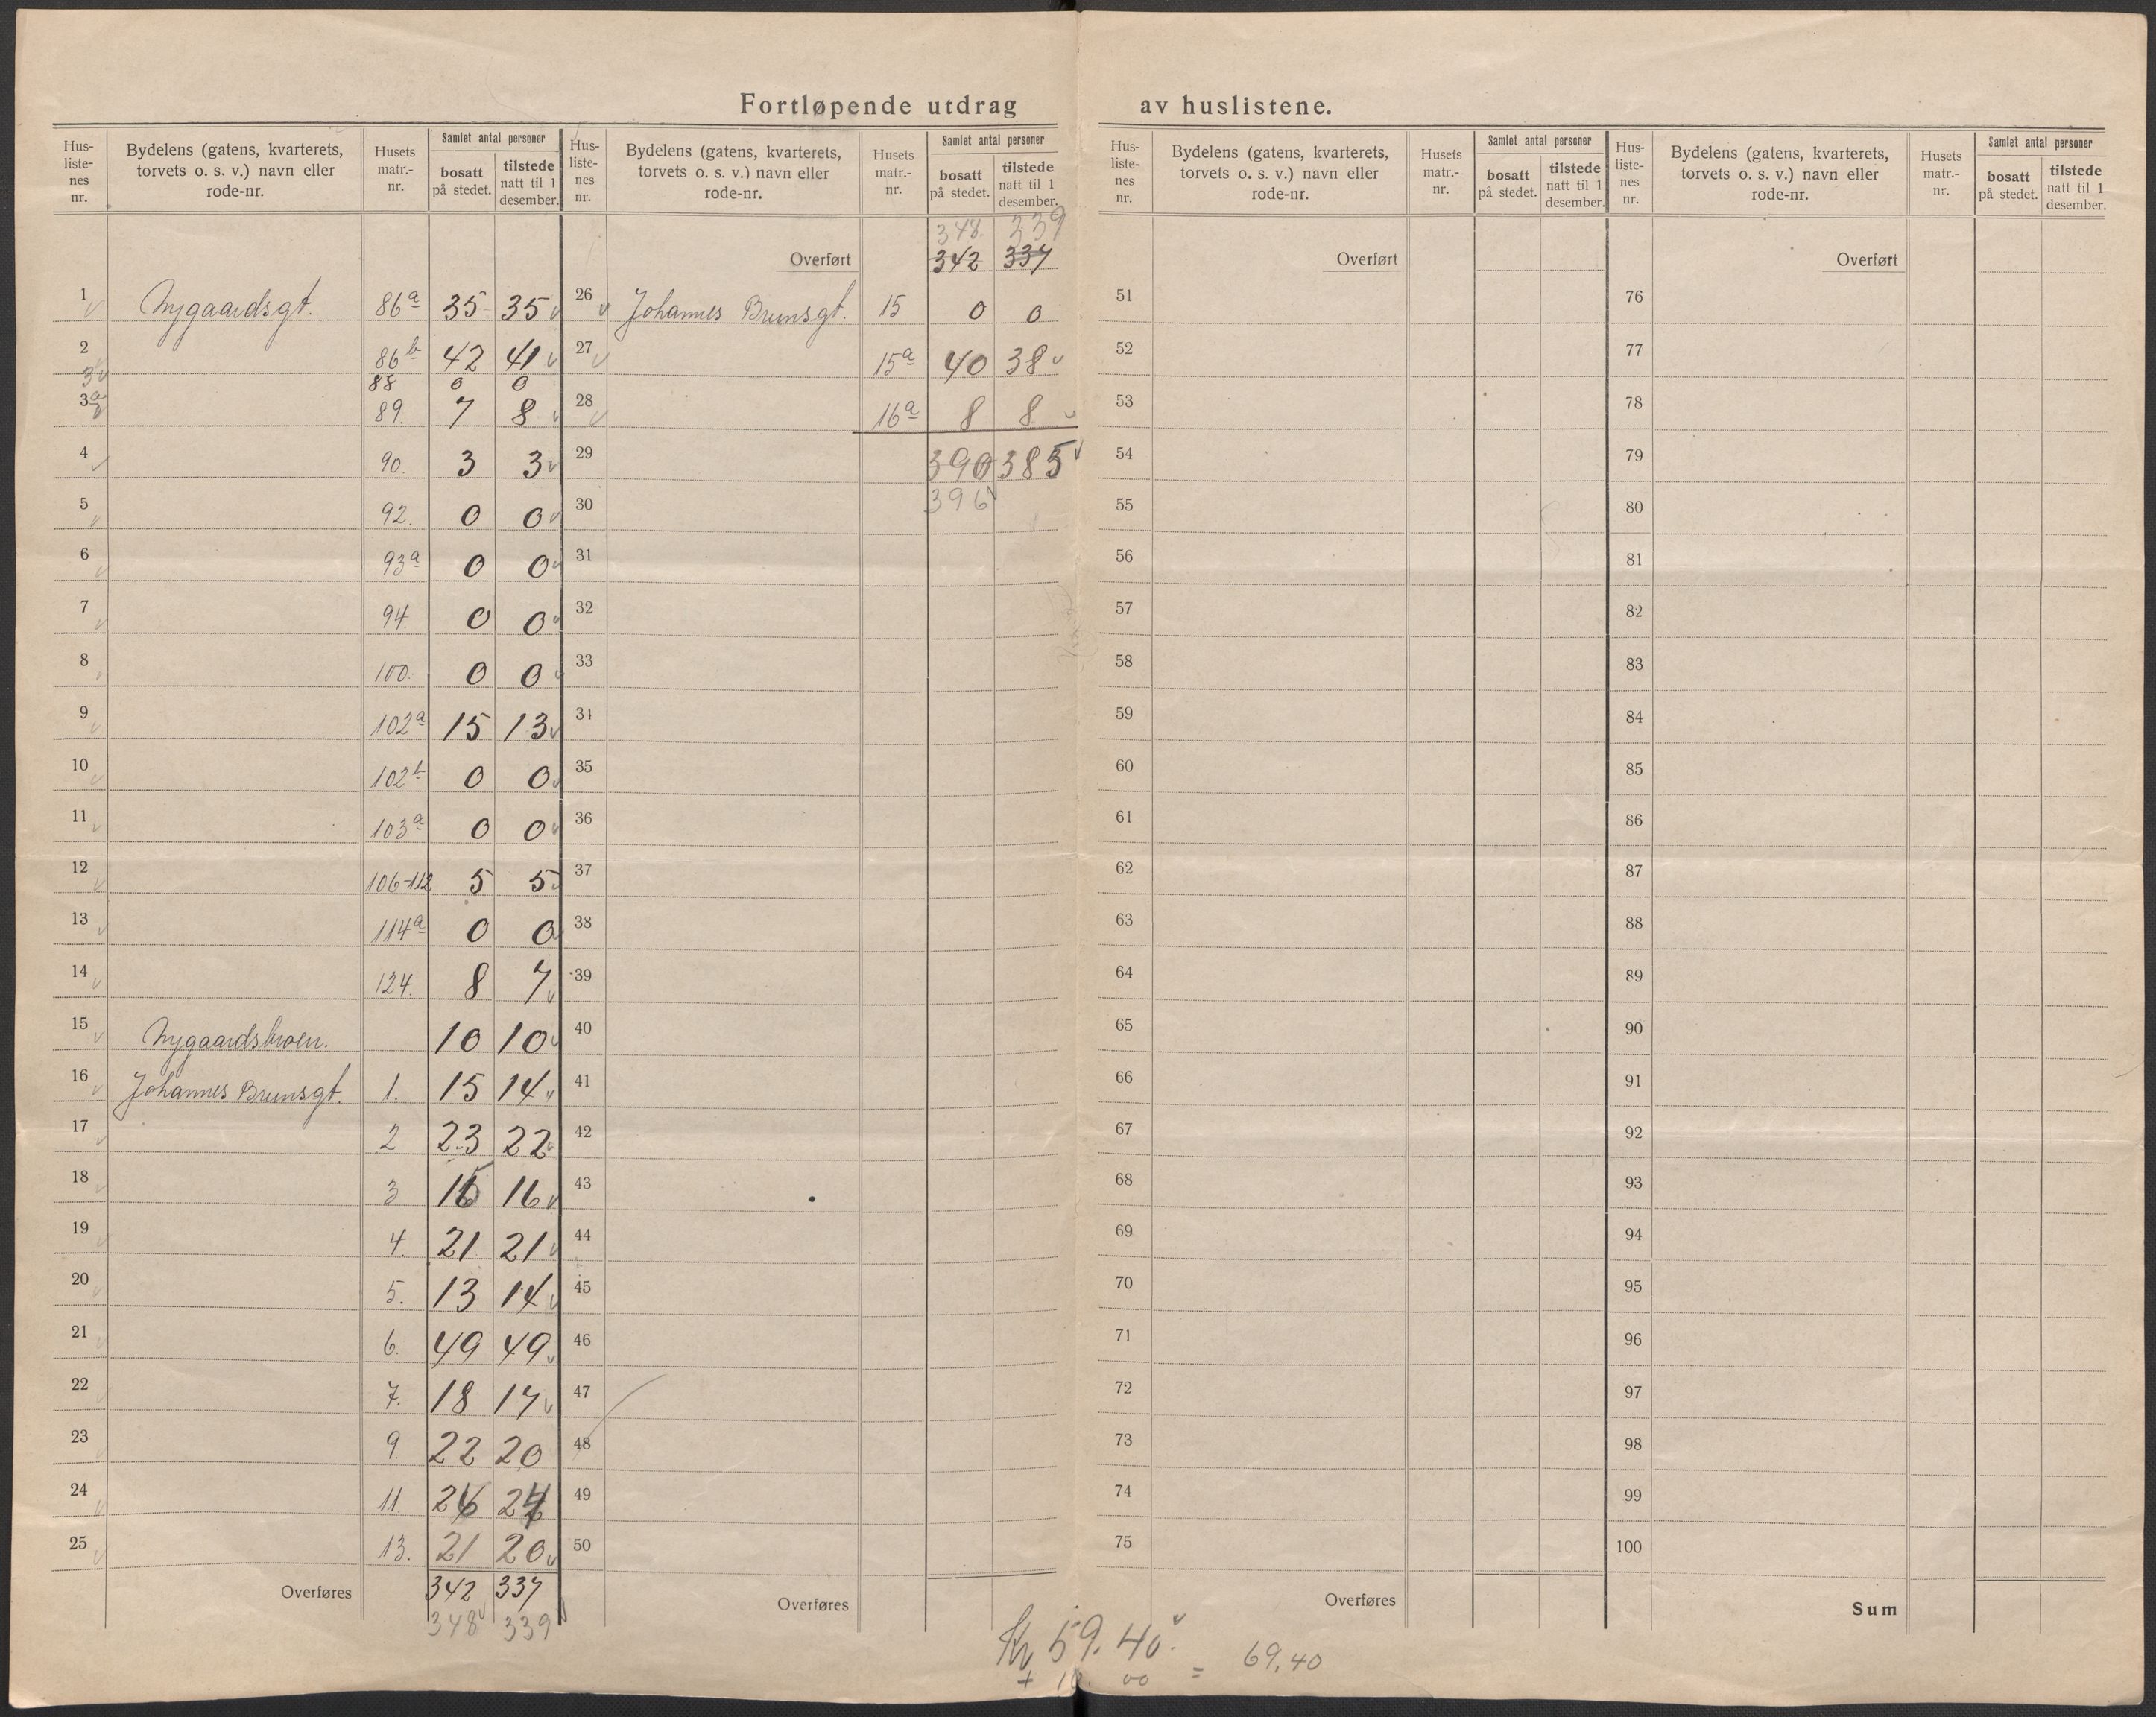 Fortløpende utdrag av huslistene.
Hus-listenes nr. Bydelens (gatens, kvarterets, torvets o. s. v.) navn eller rode-nr. Husets matr.-nr. Samlet antal personer bosatt på stedet. tilstede natt til 1 desember.
1 Nygaardsgt. 86a 35 35
2 86b 42 41
3 88 0 0
3a 89. 7 8
4 90. 3 3
5 92. 0 0
6 93a 0 0
7 94. 0 0
8 100. 0 0
9 102a 15 13
10 102b 0 0
11 103a 0 0
12 106-112 5 5
13 114a 0 0
14 124. 8 7
15 Nygaardsbroen. 10 10
16 Johannes Brunsgt. 1. 15 14
17 2 23 22
18 3 16 16
19 4. 21 21
20 5. 13 14
21 6. 49 49
22 7. 18 17
23 9. 22 20
24 11. 26 24
25 13. 21 20
Overføres 342 337
348 339
Hus-listenes nr. Bydelens (gatens, kvarterets, torvets o. s. v.) navn eller rode-nr. Husets matr.-nr. Samlet antal personer bosatt på stedet. tilstede natt til 1 desember.
348. 339
Overført 342 337
26 Johannes Brunsgt. 15 0 0
27 15a 40 38
28 16a 8 8
29 390 385
30 396
31
32
33
34
35
36
37
38
39
40
41
42
43
44
45
46
47
48
49
50
Overføres
Hus-listenes nr. Bydelens (gatens, kvarterets, torvets o. s. v.) navn eller rode-nr. Husets matr.-nr. Samlet antal personer bosatt på stedet. tilstede natt til 1 desember.
Overført
51
52
53
54
55
56
57
58
59
60
61
62
63
64
65
66
67
68
69
70
71
72
73
74
75
Overføres
Hus-listenes nr. Bydelens (gatens, kvarterets, torvets o. s. v.) navn eller rode-nr. Husets matr.-nr. Samlet antal personer bosatt på stedet. tilstede natt til 1 desember.
Overført
76
77
78
79
80
81
82
83
84
85
86
87
88
89
90
91
92
93
94
95
96
97
98
99
100
Sum
Kr 59.40.
+ 10.00 = 69,40